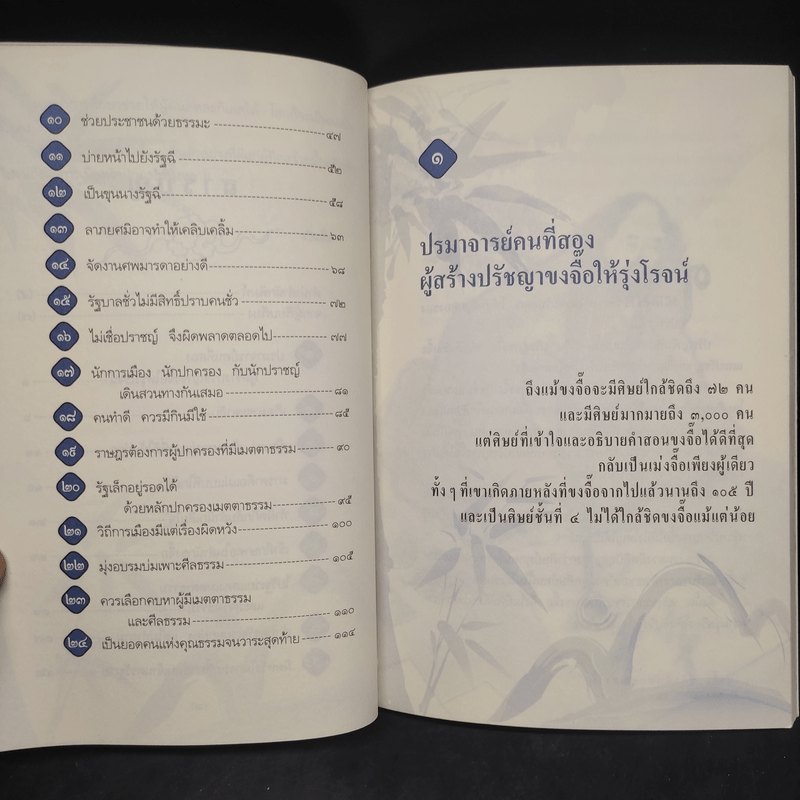 ๑๐ ช่วยประชาชนด้วยธรรมะ ๔๗
๑๑ บ่ายหน้าไปยังรัฐฉี ๕๒
๑๒ เป็นขุนนางรัฐฉี ๕๘
๑๓ ลาภยศมิอาจทำให้เคลิบเคลิ้ม ๖๓
๑๔ จัดงานศพมารดาอย่างดี ๖๘
๑๕ รัฐบาลชั่วไม่มีสิทธิ์ปราบคนชั่ว ๗๒
๑๖ ไม่เชื่อปราชญ์ จึงผิดพลาดตลอดไป ๗๗
๑๗ นักการเมือง นักปกครอง กับนักปราชญ์
เดินสวนทางกันเสมอ ๘๑
๑๘ คนทำดี ควรมีกินมีใช้ ๘๕
๑๙ ราษฎรต้องการผู้ปกครองที่มีเมตตาธรรม ๙๐
๒๐ รัฐเล็กอยู่รอดได้
ด้วยหลักปกครองเมตตาธรรม ๙๕
๒๑ วิถีการเมืองมีแต่เรื่องผิดหวัง ๑๐๐
๒๒ มุ่งอบรมบ่มเพาะศีลธรรม ๑๐๕
๒๓ ควรเลือกคบหาผู้มีเมตตาธรรม
และศีลธรรม ๑๑๐
๒๔ เป็นยอดคนแห่งคุณธรรมจนวาระสุดท้าย ๑๑๔
๑
ปรมาจารย์คนที่สอง
ผู้สร้างปรัชญาขงจื๊อให้รุ่งโรจน์
ถึงแม้ขงจื๊อจะมีศิษย์ใกล้ชิดถึง ๗๒ คน
และมีศิษย์มากมายถึง ๓,๐๐๐ คน
แต่ศิษย์ที่เข้าใจและอธิบายคำสอนขงจื๊อได้ดีที่สุด
กลับเป็นเม่งจื๊อเพียงผู้เดียว
ทั้งๆ ที่เขาเกิดภายหลังที่ขงจื๊อจากไปแล้วนานถึง ๑๐๕ ปี
และเป็นศิษย์ชั้นที่ ๔ ไม่ได้ใกล้ชิดขงจื๊อแม้แต่น้อย